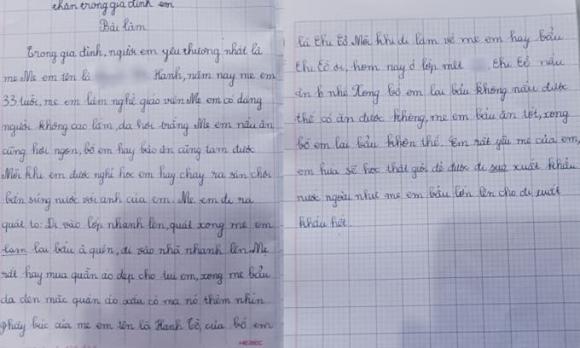 thân trong gia đình em
Bài làm
Trong gia đình, người em yêu thương nhất là
mẹ. Mẹ em tên là Hanh, năm nay mẹ em
33 tuổi, mẹ em làm nghề giáo viên. Mẹ em có dáng
người không cao lắm, da hơi trắng. Mẹ em nấu ăn
cũng hơi ngon, bố em hay bảo ăn cũng tạm được.
Mỗi khi em được nghỉ học em hay chạy ra sân chơi
bắn súng nước với anh của em. Mẹ em đi ra
quát to: Đi vào lớp nhanh lên, quát xong mẹ em
lại bẩu à quên, đi vào nhà nhanh lên. Mẹ
rất hay mua quần áo đẹp cho tui em, xong mẹ bẩu
da đen mặc quần áo xấu có ma nó thèm nhìn
của mẹ em tên là Hanh Tồ, của bố em
HERBEC
là Thu Tồ. Mỗi khi đi làm về mẹ em hay bẩu
Thu Tồ ơi, hôm nay ở lớp mệt Thu Tồ nấu
ăn nhé. Xong bố em lại bẩu không nấu được
thế có ăn được không, mẹ em bẩu ăn tốt, xong
bố em lại bẩu khôn thế. Em rất yêu mẹ của em,
em hứa sẽ học thật giỏi để được đi xuất khẩu
nước ngoài như mẹ em bẩu lớn lên cho đi xuất
khẩu hết.